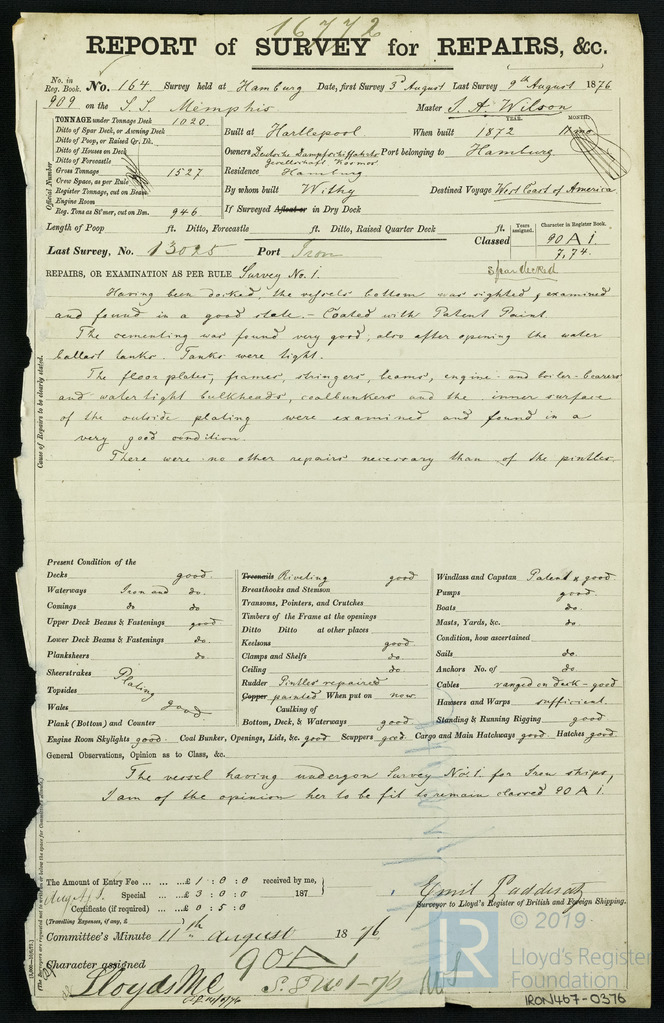 16772
REPORT of SURVEY for REPAIRS, &c.
No. in Reg. Book. No. 164 Survey held at Hamburg Date, first Survey 3d August Last Survey 9th August 1876
909 on the S.S. Memphis Master J. A. Wilson
TONNAGE under Tonnage Deck 1020
Ditto of Spar Deck, or Awning Deck
Ditto of Poop, or Raised Qr. Dk.
Ditto of Houses on Deck
Ditto of Forecastle
Gross Tonnage 1527
Crew Space, as per Rule
Register Tonnage, cut on Beam
Engine Room
Reg. Tons as St'mer, cut on Bm. 946
Official Number
Built at Hartlepool When built YEAR. 1872 MONTH.
Owners Deutsche Dampfschiffahrts Gesellschaft Kosmos Port belonging to Hamburg
Residence Hamburg
By whom built Withy Destined Voyage West Coast of America
If Surveyed Afloat or in Dry Dock
Length of Poop ft. Ditto, Forecastle ft. Ditto, Raised Quarter Deck ft.
Years assigned. Character in Register Book.
Classed 90 A 1
7,74
Spar decked
Last Survey, No. 13025 Port Iron
REPAIRS, OR EXAMINATION AS PER RULE Survey No. 1.
Having been docked, the vessels bottom was sighted, examined
and found in a good state. – Coated with Patent Paint.
The cementing was found very good, also after opening the water
ballast tanks. Tanks were tight.
The floor plates, frames, stringers, beams, engine- and boiler-bearers
and watertight bulkheads, coalbunkers and the inner surface
of the outside plating were examined and found in a
very good condition.
There were no other repairs necessary than of the pintles
Cause of Repairs to be clearly stated.
Present Condition of the
Decks good.
Waterways Iron and do.
Comings do do
Upper Deck Beams & Fastenings good
Lower Deck Beams & Fastenings do
Planksheers do
Sheerstrakes
Topsides Plating
Wales good.
Plank (Bottom) and Counter
Treenails Riveting good
Breasthooks and Stemson
Transoms, Pointers, and Crutches
Timbers of the Frame at the openings
Ditto Ditto at other places
Keelsons good
Clamps and Shelfs do
Ceiling do
Rudder Pintles repaired
Copper painted When put on now
Caulking of
Bottom, Deck, & Waterways good
Windlass and Capstan Patent & good
Pumps good
Boats do.
Masts, Yards, &c. do.
Condition, how ascertained
Sails do
Anchors No. of do.
Cables ranged on deck – good
Hawsers and Warps sufficient.
Standing & Running Rigging good
Engine Room Skylights good. Coal Bunker, Openings, Lids, &c. good Scuppers good Cargo and Main Hatchways good Hatches good
General Observations, Opinion as to Class, &c.
The vessel having undergon Survey No. 1. for Iron ships,
I am of the opinion her to be fit to remain classed 90 A 1.
The Amount of Entry Fee £ 1 : 0 : 0 received by me,
Special £ 3 : 0 : 0 187
Certificate (if required) £ 0 : 5 : 0
(Travelling Expenses, if any, £ )
Surveyor to Lloyd's Register of British and Foreign Shipping.
Committee's Minute 11th August 1876
Character assigned 90A1
Lloyds M.C
© 2019
LR Lloyd's Register
Foundation
IRON467-0376